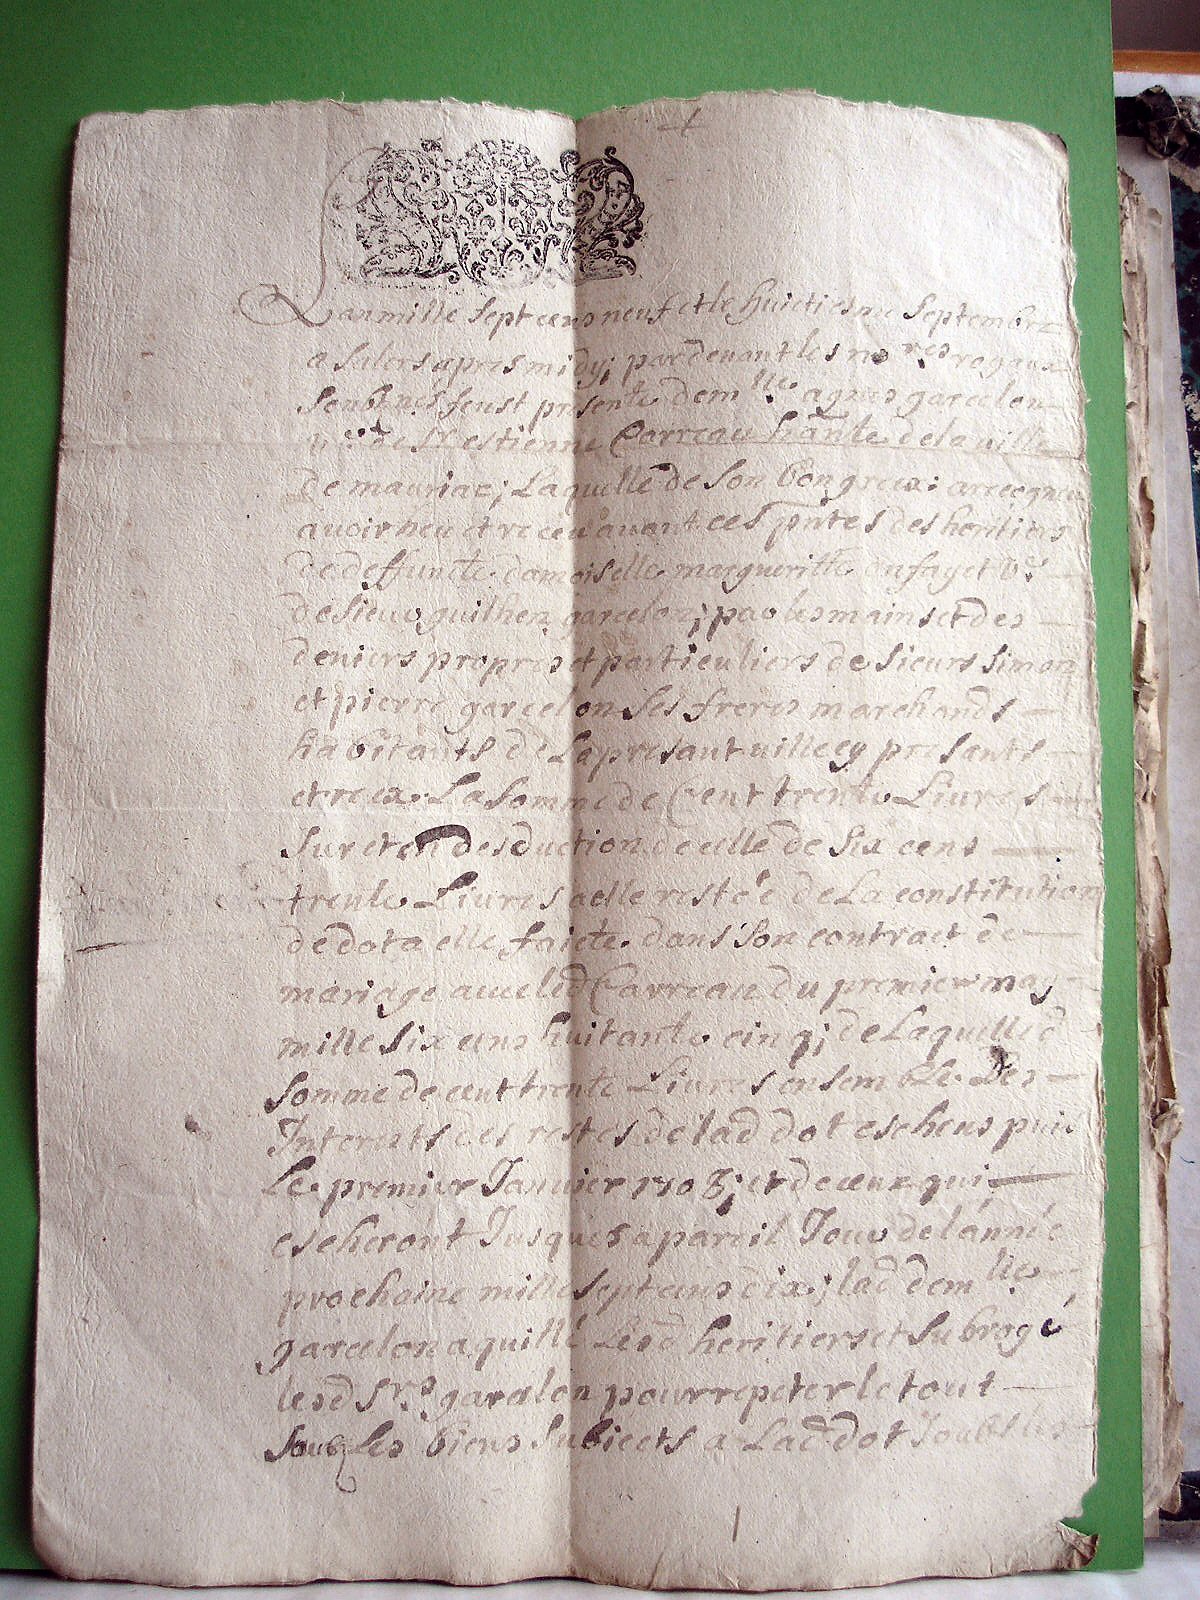 Lan mille sept cens neuf et le huictiesme septembre
a salers apres midy; pardevant les no.res royaux
soubz.nes feust presente dem.lle agnes garcelon
v.e de Sr estienne Carreau habante de la ville
de mauriac; Laquelle de son bon gre a recogneu
avoir heu et receu avant ces pntes des heritiers
de deffuncte damoiselle margueritte onfayet v.e
de sieur guilhen garcelon; par les mains et des
deniers propres et particuliers de sieurs simon
et pierre garcelon ses freres marchands
habitants de la presant ville cy presants
et La somme de Cent trente Livres
sur et en desduction de celle de six cens
trente Livres a elle restée de La constitution
de dot a elle faicte dans son contract de
mariage avec led Carreau du premier may
mille six cens huitante cinq; de Laquelle d
somme de cent trente Livres ensemble Des
Interests des restes de lad dot escheus puis
Le premier Janvier 1703; et de ceux qui
escheront Jusques a pareil Jour de l'année
prochaine mille sept cens dix; lad dem.lle
garcelon a quitté Lesd heritiers et subrogé
lesd Srs garcelon pour repeter le tout
sous Les biens subiects a Lad dot soubs les